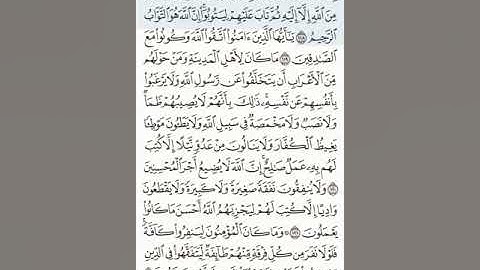 مِنَ ٱللَّهِ إِلَّآ إِلَيْهِ ثُمَّ تَابَ عَلَيْهِمْ لِيَتُوبُوٓا۟ إِنَّ ٱللَّهَ هُوَ ٱلتَّوَّابُ
ٱلرَّحِيمُ ١١٨ يَـٰٓأَيُّهَا ٱلَّذِينَ ءَامَنُوا۟ ٱتَّقُوا۟ ٱللَّهَ وَكُونُوا۟ مَعَ
ٱلصَّـٰدِقِينَ ١١٩ مَا كَانَ لِأَهْلِ ٱلْمَدِينَةِ وَمَنْ حَوْلَهُم
مِّنَ ٱلْأَعْرَابِ أَن يَتَخَلَّفُوا۟ عَن رَّسُولِ ٱللَّهِ وَلَا يَرْغَبُوا۟
بِأَنفُسِهِمْ عَن نَّفْسِهِۦ ۚ ذَٰلِكَ بِأَنَّهُمْ لَا يُصِيبُهُمْ ظَمَأٌ
وَلَا نَصَبٌ وَلَا مَخْمَصَةٌ فِى سَبِيلِ ٱللَّهِ وَلَا يَطَـُٔونَ مَوْطِئًا
يَغِيظُ ٱلْكُفَّارَ وَلَا يَنَالُونَ مِنْ عَدُوٍّ نَّيْلًا إِلَّا كُتِبَ
لَهُم بِهِۦ عَمَلٌ صَـٰلِحٌ ۚ إِنَّ ٱللَّهَ لَا يُضِيعُ أَجْرَ ٱلْمُحْسِنِينَ
١٢٠ وَلَا يُنفِقُونَ نَفَقَةً صَغِيرَةً وَلَا كَبِيرَةً وَلَا يَقْطَعُونَ
وَادِيًا إِلَّا كُتِبَ لَهُمْ لِيَجْزِيَهُمُ ٱللَّهُ أَحْسَنَ مَا كَانُوا۟
يَعْمَلُونَ ١٢١ وَمَا كَانَ ٱلْمُؤْمِنُونَ لِيَنفِرُوا۟ كَآفَّةً ۚ
فَلَوْلَا نَفَرَ مِن كُلِّ فِرْقَةٍ مِّنْهُمْ طَآئِفَةٌ لِّيَتَفَقَّهُوا۟ فِى ٱلدِّينِ